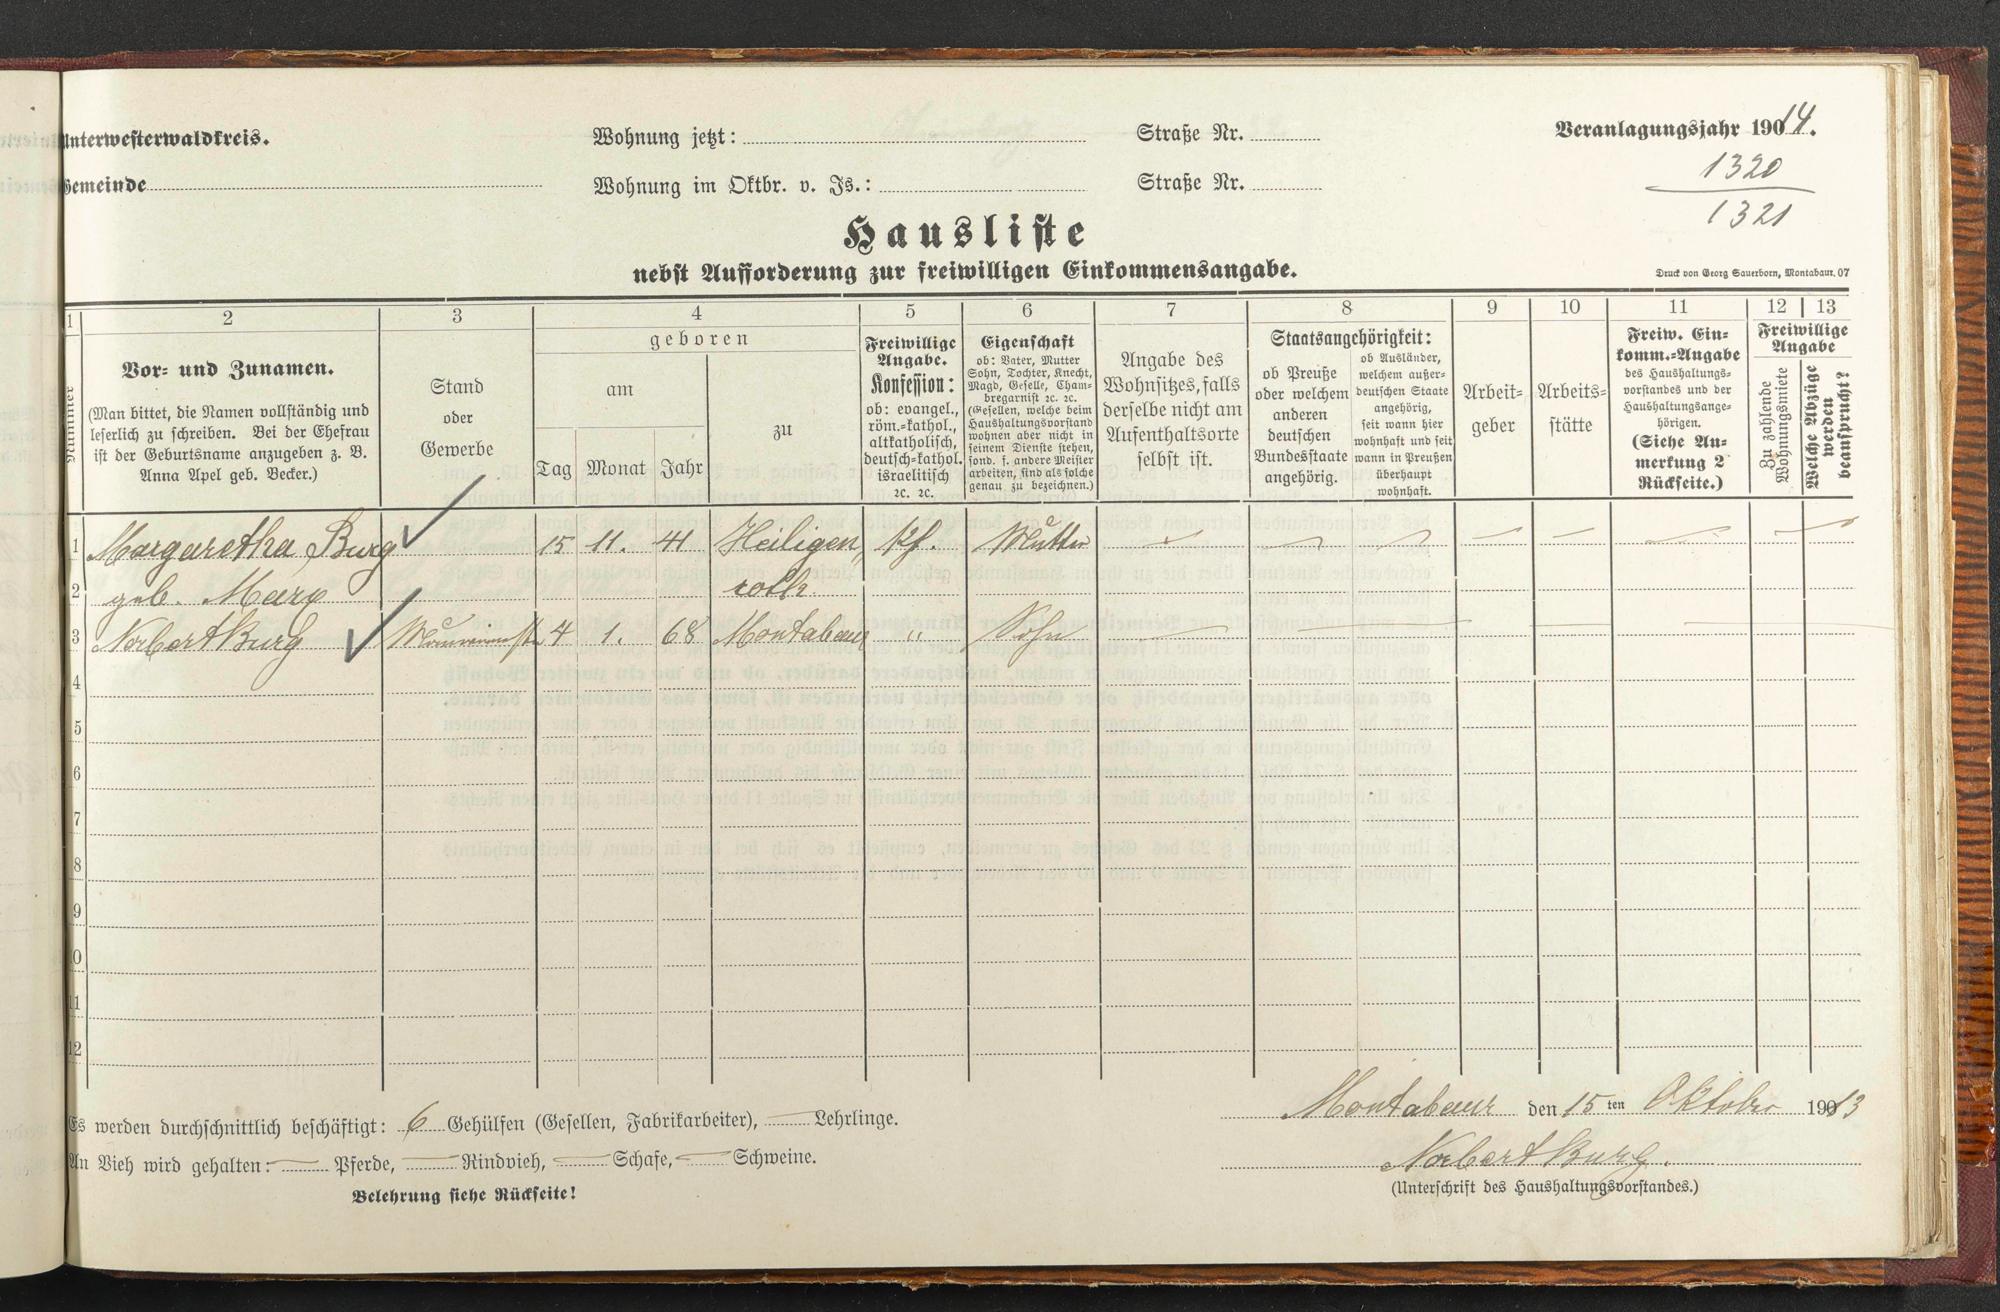 Unterwesterwaldkreis.
Wohnung jetzt:
Straße Nr.
Veranlagungsjahr 19014.
Gemeinde
Wohnung im Oktbr. v. Js.:
Straße Nr.
1320
1321
Hausliste
nebst Aufforderung zur freiwilligen Einkommensangabe.
Druck von Georg Sauerborn, Montabaur. 07
1 2 3 4 5 6 7 8 9 10 11 12 13
Nummer
Vor- und Zunamen.
(Man bittet, die Namen vollständig und
leserlich zu schreiben. Bei der Ehefrau
ist der Geburtsname anzugeben z. B.
Anna Apel geb. Becker.)
Stand
oder
Gewerbe
geboren
am
zu
Tag Monat Jahr
Freiwillige
Angabe.
Konfession:
ob: evangel.,
röm.-kathol.,
altkatholisch,
deutsch-kathol.
israelitisch
ꝛc. ꝛc.
Eigenschaft
ob: Vater, Mutter
Sohn, Tochter, Knecht,
Magd, Geselle, Cham-
bregarnist ꝛc. ꝛc.
(Gesellen, welche beim
Haushaltungsvorstand
wohnen aber nicht in
seinem Dienste stehen,
sond. f. andere Meister
arbeiten, sind als solche
genau zu bezeichnen.)
Angabe des
Wohnsitzes, falls
derselbe nicht am
Aufenthaltsorte
selbst ist.
Staatsangehörigkeit:
ob Preuße
oder welchem
anderen
deutschen
Bundesstaate
angehörig.
ob Ausländer,
welchem außer-
deutschen Staate
angehörig,
seit wann hier
wohnhaft und seit
wann in Preußen
überhaupt
wohnhaft.
Arbeit-
geber
Arbeits-
stätte
Freiw. Ein-
komm.-Angabe
des Haushaltungs-
vorstandes und der
Haushaltungsange-
hörigen.
(Siehe An-
merkung 2
Rückseite.)
Freiwillige
Angabe
Zu zahlende
Wohnungsmiete
Welche Abzüge
werden
beansprucht?
1 Margaretha Burg 15 11. 41 Heiligen, Kf. Mutter
2 geb. Marx roth.
3 Norbert Burg 4 1. 68 Montabaur " Sohn
4
5
6
7
8
9
10
11
12
Es werden durchschnittlich beschäftigt: 6 Gehülfen (Gesellen, Fabrikarbeiter), — Lehrlinge.
An Vieh wird gehalten: — Pferde, — Rindvieh, — Schafe, — Schweine.
Belehrung siehe Rückseite!
Montabaur den 15ten Oktober 19013
Norbert Burg.
(Unterschrift des Haushaltungsvorstandes.)